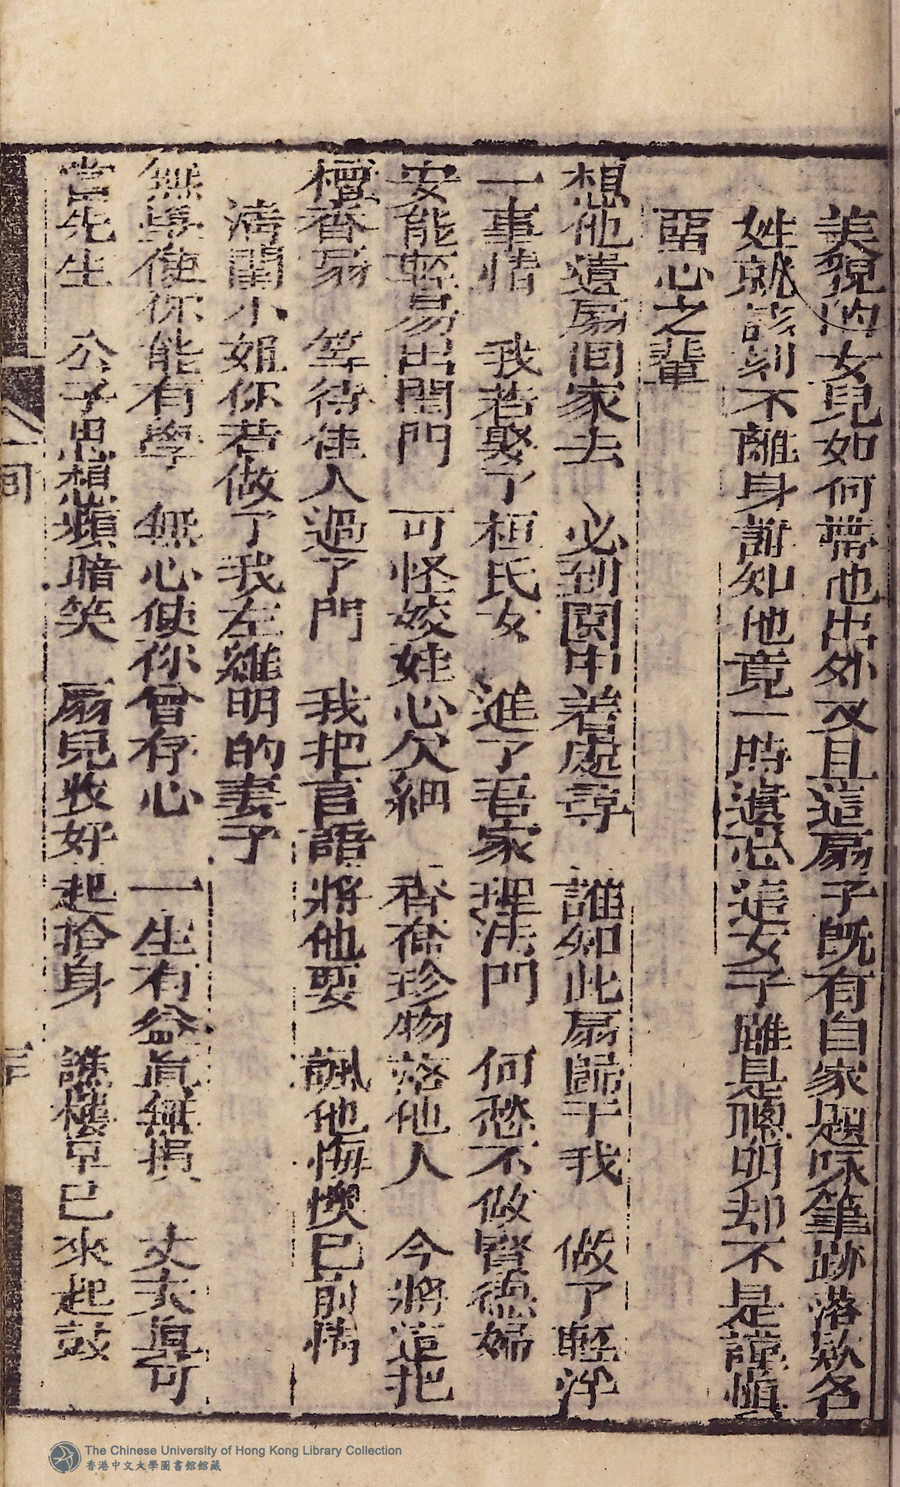 美貌的女兒如何帶他出外又且這扇子既有自家題咏筆跡落欵名
姓就該刻不離身誰知他竟一時遺忘這女子雖是聰明却不是謹慎
畱心之輩
想他遺扇回家去 必到園中着處尋 誰知此扇歸于我 做了輕浮
一事情 我若娶了桓氏女 進了吾家 門 何愁不做賢德婦
安能輕易出閨門 可怪姣娃心欠細 香奩珍物落他人 今將這把
檀香扇 等待佳人過了門 我把言語將他耍 諷他悔懊已前情
清閨小姐你若做了我左維明的妻子
無學使你能有學 無心使你曾存心 一生有益眞無損 丈夫眞可
當先生 公子思想 暗笑 扇兒收好起抬身 譙樓早已來起鼓
The Chinese University of Hong Kong Library Collection
香港中文大學圖書館館藏